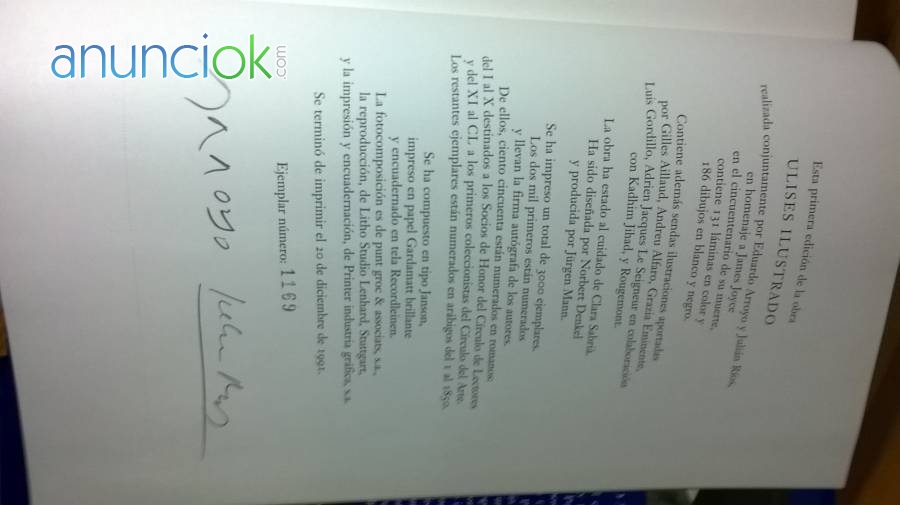 anunciok.com
Esta primera edición de la obra
ULISES ILUSTRADO
realizada conjuntamente por Eduardo Arroyo y Julián Ríos,
en homenaje a James Joyce
en el cincuentenario de su muerte,
contiene 131 láminas en color y
186 dibujos en blanco y negro.
Contiene además sendas ilustraciones aportadas
por Gilles Aillaud, Andreu Alfaro, Grazia Eminente,
Luis Gordillo, Adrien Jacques Le Seigneur en colaboración
con Kadhim Jihad, y Rougemont.
La obra ha estado al cuidado de Clara Sabrià.
Ha sido diseñada por Norbert Denkel
y producida por Jürgen Mann.
Se ha impreso un total de 3000 ejemplares.
Los dos mil primeros están numerados
y llevan la firma autógrafa de los autores.
De ellos, ciento cincuenta están numerados en romanos:
del I al X destinados a los Socios de Honor del Círculo de Lectores
y del XI al CL a los primeros coleccionistas del Círculo del Arte.
Los restantes ejemplares están numerados en arábigos del 1 al 1850.
Se ha compuesto en tipo Janson,
impreso en papel Gardamatt brillante
y encuadernado en tela Recordleinen.
La fotocomposición es de punt groc & associats, s.a.,
la reproducción, de Litho Studio Lenhard, Stuttgart,
y la impresión y encuadernación, de Printer industria gráfica, s.a.
Se terminó de imprimir el 20 de diciembre de 1991.
Ejemplar número: 1169